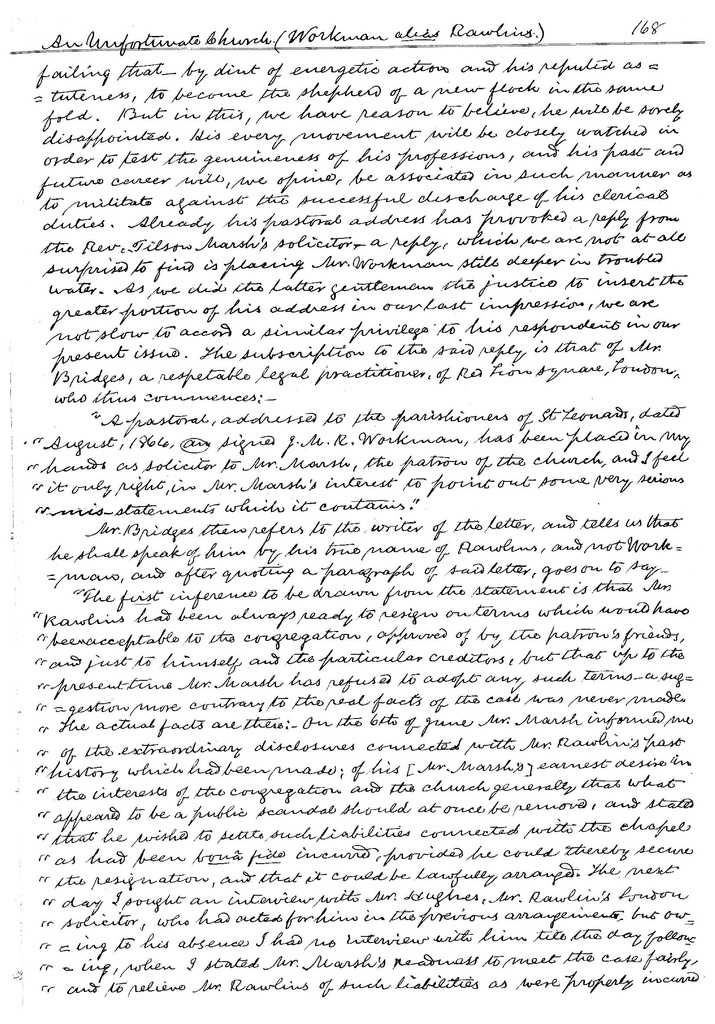 An Unfortunate Church (Workman alias Rawlins.) 168
failing that – by dint of energetic action and his reputed as=
=tuteness, to become the shepherd of a new flock in the same
fold. But in this, we have reason to believe, he will be sorely
disappointed. His every movement will be closely watched in
order to test the genuineness of his professions, and his past and
future career will, we opine, be associated in such manner as
to militate against the successful discharge of his clerical
duties. Already his pastoral address has provoked a reply from
the Rev. Tilson Marsh's solicitor – a reply, which we are not at all
surprised to find is placing Mr. Workman still deeper in troubled
water. As we did the latter gentleman the justice to insert the
greater portion of his address in our last impression, we are
not slow to accord a similar privilege to his respondent in our
present issue. The subscription to the said reply is that of Mr.
Bridges, a respetable legal practitioner, of Red Lion Square, London,
who thus commences:–
"A pastoral, addressed to the parishioners of St Leonards, dated
"August, 1866, an signed J. M. R. Workman, has been placed in my
"hands as solicitor to Mr. Marsh, the patron of the church, and I feel
"it only right, in Mr. Marsh's interest to point out some very serious
"mis-statements which it contains."
Mr. Bridges then refers to the writer of the letter, and tells us that
he shall speak of him by his true name of Rawlins, and not Work=
=man, and after quoting a paragraph of said letter, goes on to say –
"The first inference to be drawn from the statement is that Mr.
"Rawlins had been always ready to resign on terms which would have
"been acceptable to the congregation, approved of by the patron's friends,
"and just to himself and the particular creditors, but that up to the
"present time Mr. Marsh has refused to adopt any such terms – a sug=
"=gestion more contrary to the real facts of the case was never made.
"The actual facts are these:– On the 6th of June Mr. Marsh informed me
"of the extraordinary disclosures connected with Mr. Rawlin's past
"history which had been made; of his [Mr. Marsh's] earnest desire in
"the interests of the congregation and the church generally that what
"appeared to be a public scandal should at once be removed, and stated
"that he wished to settle such liabilities connected with the chapel
"as had been bonâ fide incurred, provided he could thereby secure
"the resignation, and that it could be lawfully arranged. The next
"day I sought an interview with Mr. Hughes, Mr. Rawlin's London
"solicitor, who had acted for him in the previous arrangements, but ow=
"=ing to his absence I had no interview with him till the day follow=
"=ing, when I stated Mr. Marsh's readiness to meet the case fairly,
"and to relieve Mr. Rawlins of such liabilities as were properly incurred